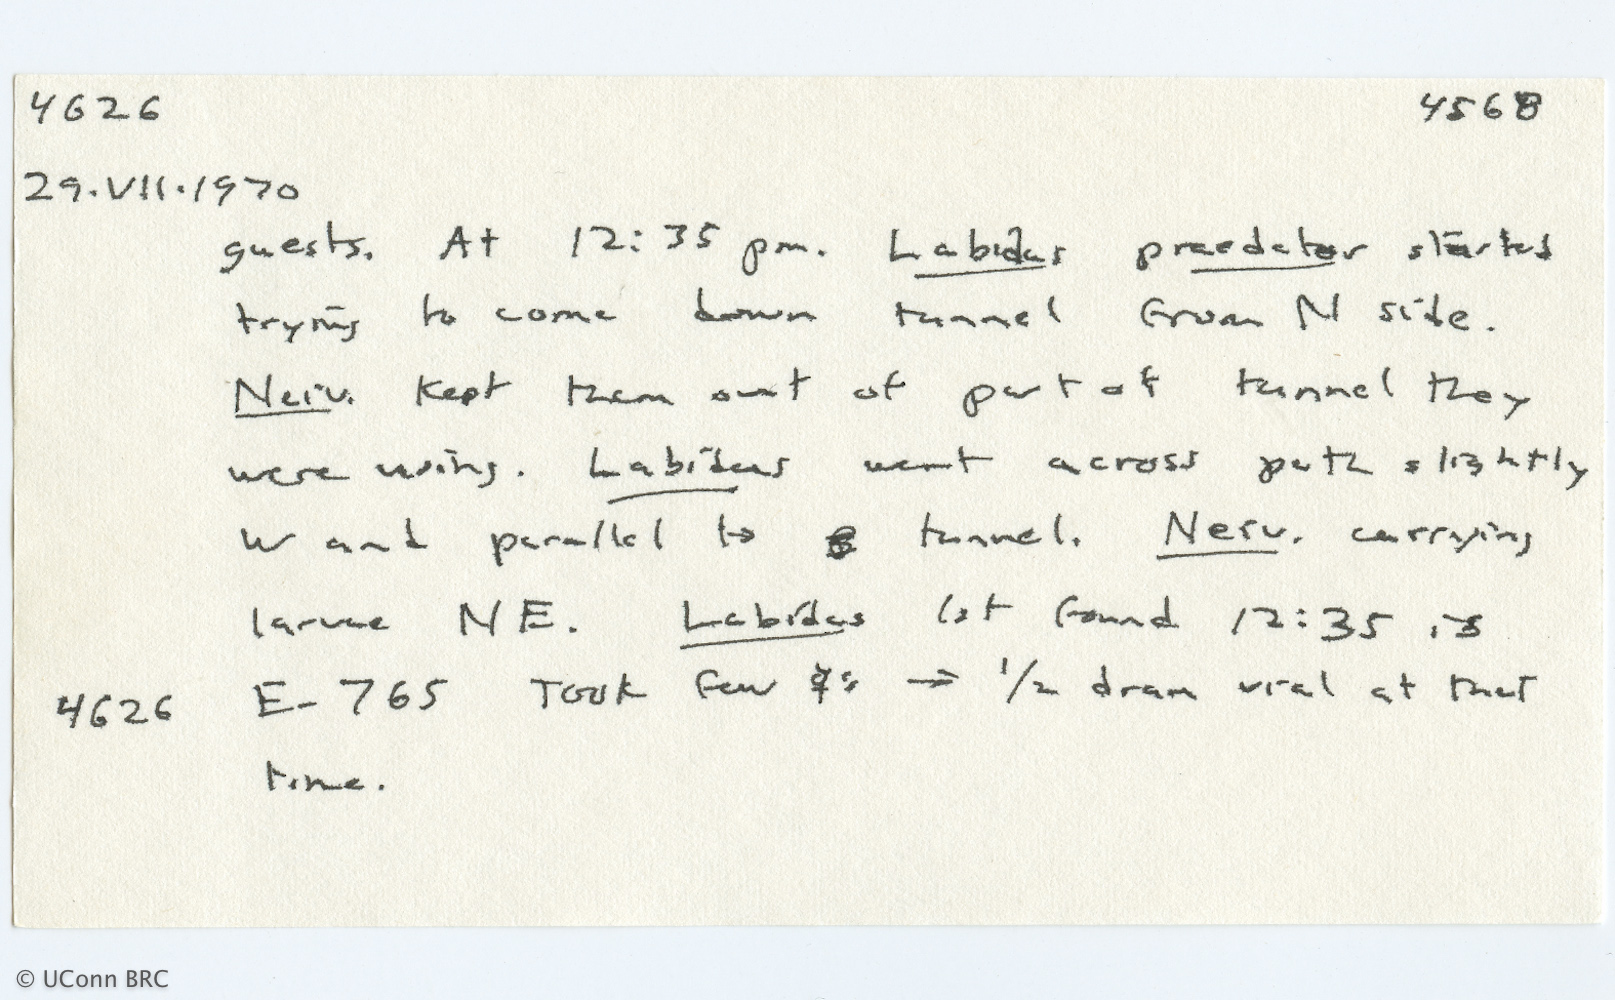 4626 4568
29.VII.1970
guests. At 12:35 pm. Labidus praedator started
trying to come down tunnel from N side.
Neiv. kept them out of part of tunnel they
were using. Labidus went across path slightly
W and parallel to tunnel. Neiv. carrying
larvae NE. Labidus 1st found 12:35 is
4626 E-765 Took few → 1/2 dram vial at that
time.
© UConn BRC